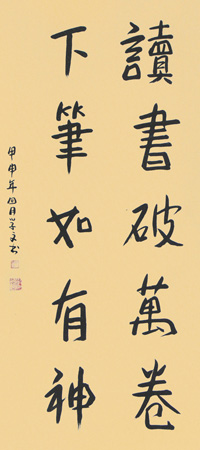 讀書破萬卷
下筆如有神
甲申年四月